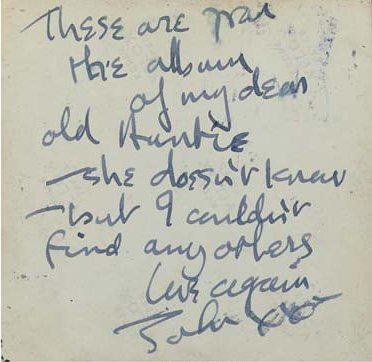 These are from
the album
of my dear
old Auntie
— she doesn't know
— but I couldn't
find any others
Luv again
John xxx